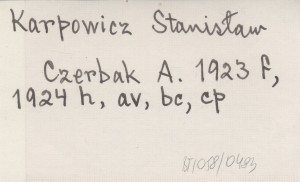 Karpowicz Stanisław
Czerbak A. 1923 f,
1924 h, av, bc, cp